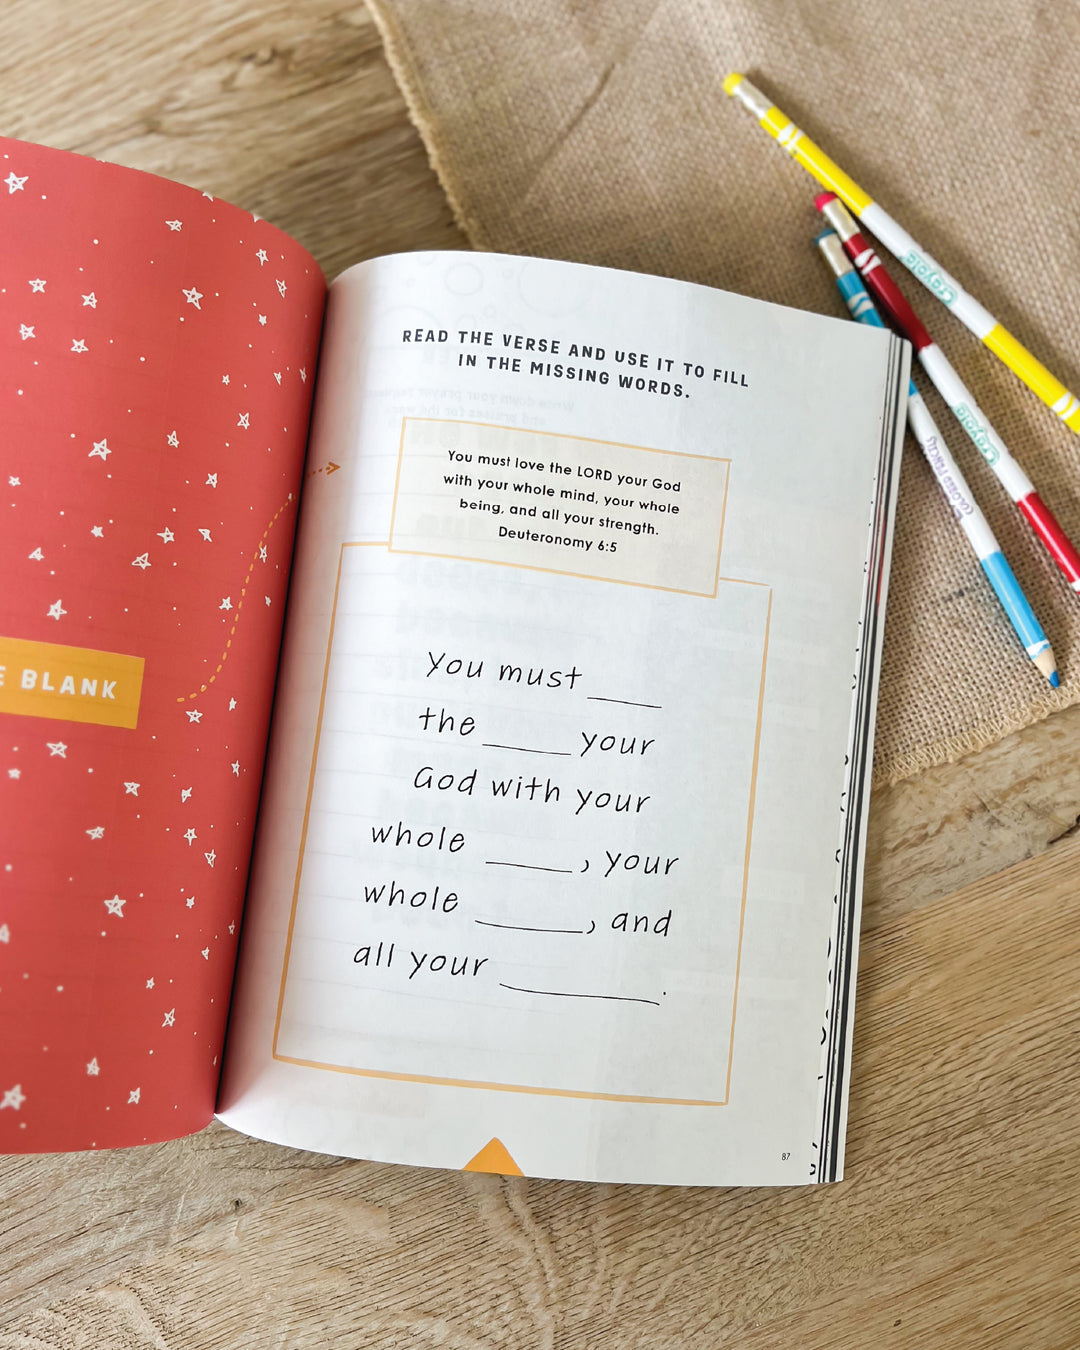 E BLANK
READ THE VERSE AND USE IT TO FILL
IN THE MISSING WORDS.
You must love the LORD your God
with your whole mind, your whole
being, and all your strength.
Deuteronomy 6:5
You must ____
the ____ your
God with your
whole ____, your
whole ____, and
all your ____.
87
Crayola
Crayola
COLORED PENCILS